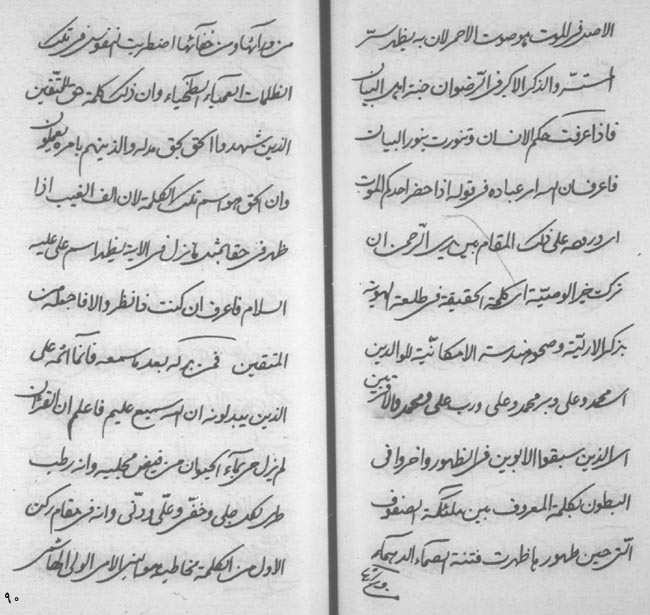 الاصغر الموت هو صوت الاحمر لان به يظهر سر
المستسر والذكر الاكبر فى الرضوان جنة اهل البيان
فاذا عرفت حكم الانسان وتنورت بنور البيان
فاعرف ان الله امر عباده فى قوله اذا حضر احدكم الموت
اى روحه على تلك المقام بين يدى الرحمن ان
ترك خير الوصية اى كلمة الحقيقة فى طلعة الهوية
بذكر الازلية وصحو هندسة الامكانية للوالدين
اى محمد وعلى وبر محمد وعلى ورب على ومحمد والاقربين
اى الذين سبقوا الابوين فى الظهور واخروا فى
البطون بكلمة المعروف بين ملئكة الصفوف
التى حين ظهورها ظهرت فتنة الصماء الدهماء
من ورآئها ومن خفائها اضطربت النفوس فى تلك
الظلمات العمياء الطخياء وان ذلك كلمة حق للمتقين
الذين شهدوا الحق بحق مدله والذينهم بامره يعملون
وان الحق هو اسم تلك الكلمة لان الف الغيب اذا
ظهر فى حقائبهم مانزل فى الاية ليظهر اسم على عليه
السلام فاعرف ان كنت ذانظر والا فاجعله من
المتقين فمن بدله بعد ما سمعه فانما اثمه على
الذين يبدلونه ان الله سميع عليم فاعلم ان القرآن
لم يزل حى بماء الحيوان من فيض مجليه وانه رطب
طرى لكل جلى وخفى وعلى ودنى وانه فى مقام ركن
الاول من الكلمة يخاطب هو اهل الامر الولى الهاشمى
٩٠